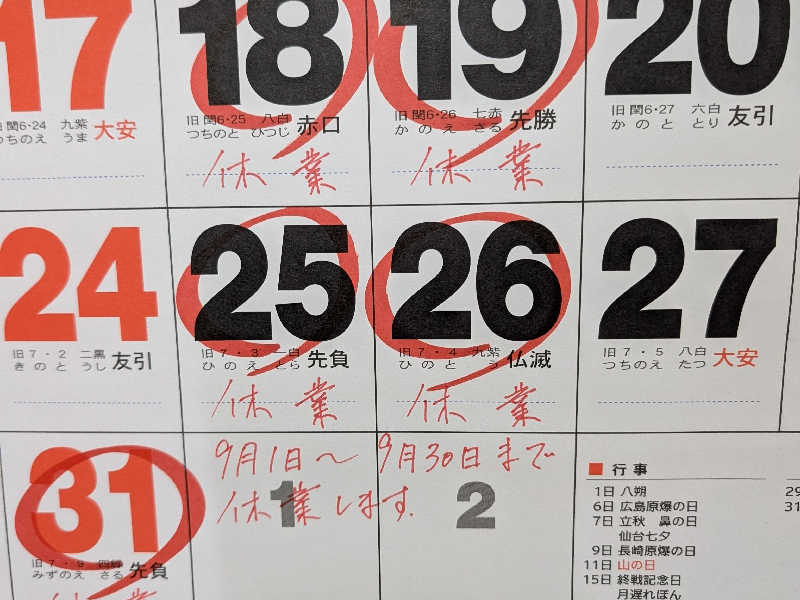 17
18
19
20
旧 閏6・24 九紫
つちのえ うま 大安
旧 閏6・25 八白
つちのと ひつじ 赤口
旧 閏6・26 七赤
かのえ さる 先勝
旧 閏6・27 六白
かのと とり 友引
休業
休業
24
25
26
27
旧 7・2 二黒
きのと うし 友引
旧 7・3 一白
ひのえ とら 先負
旧 7・4 九紫
ひのと う 仏滅
旧 7・5 八白
つちのえ たつ 大安
休業
休業
31
旧 7・9 四緑
みずのえ さる 先負
9月1日〜9月30日まで
休業します.
1
2
■ 行事
1日 八朔
6日 広島原爆の日
7日 立秋 鼻の日
仙台七夕
9日 長崎原爆の日
11日 山の日
15日 終戦記念日
月遅れぼん
29
31